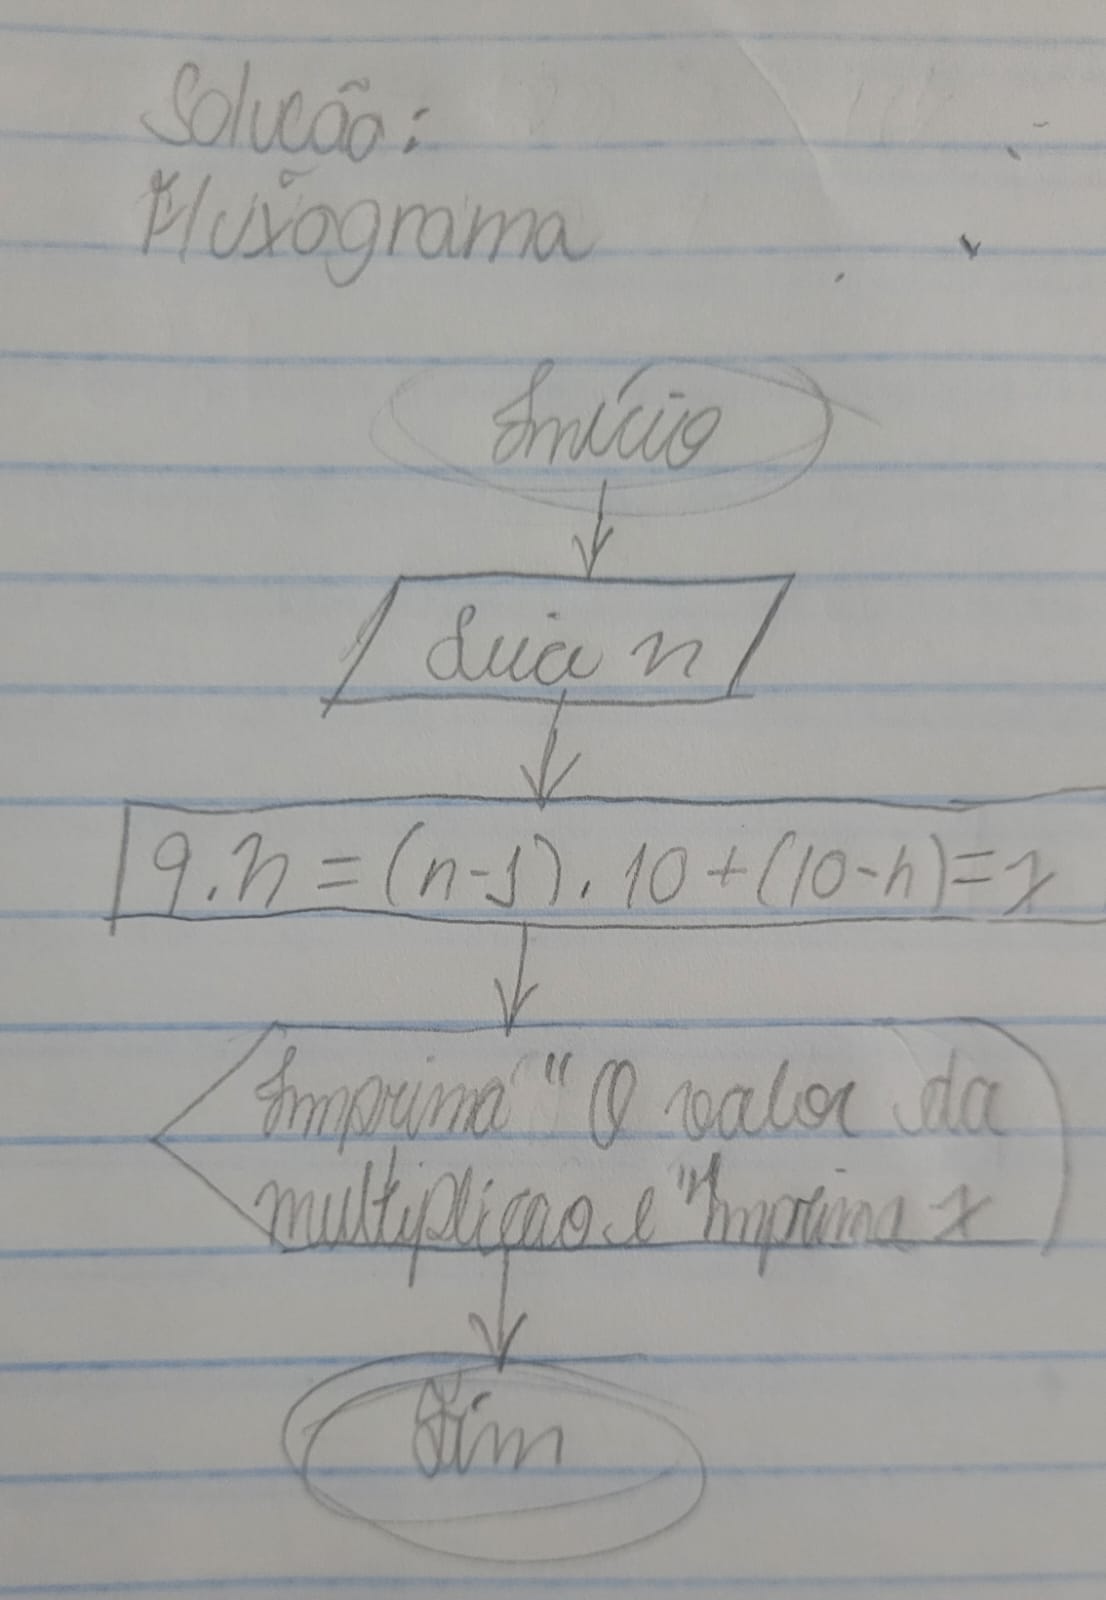 Solução:
Fluxograma
Início
Leia n
9.n = (n-1). 10 + (10-n) = x
Imprima "O valor da
multipliçao e "Imprima x
Fim